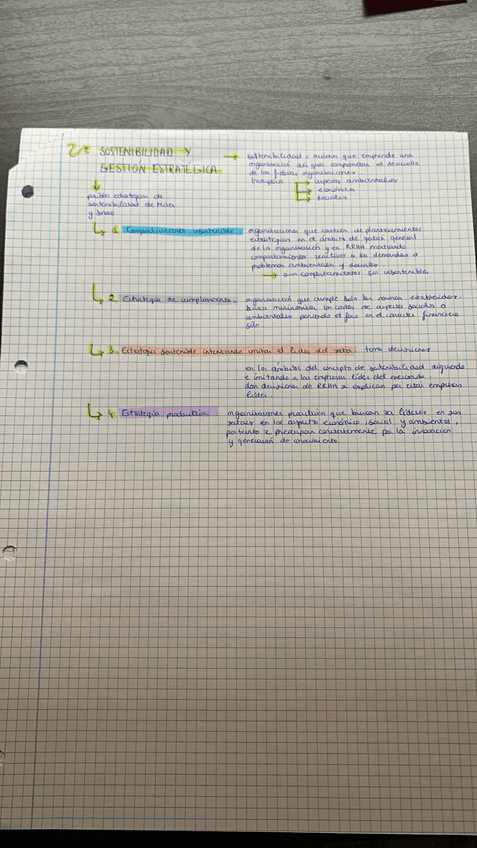 SOSTENIBILIDAD Y
GESTIÓN ESTRATÉGICA
→ sostenibilidad = acción que emprende una
organización sin que comprometan el desarrollo
de las futuras organizaciones
aspectos ambientales
económicos
sociales
posibles estrategias de
sostenibilidad de
y Snow
1. Comportamiento insostenible. organizaciones que carecen de planteamientos
estratégicos en el ámbito de gestión general
de la organización y en RRHH mostrando
comportamientos reactivos a las demandas o
problemas ambientales y sociales
→ sus comportamientos son insostenibles
2. Estrategia de cumplimiento. organización que cumple solo las normas establecidas.
busca minimizar los costes de aspectos sociales o
ambientales poniendo el foco en el carácter financiero
3. Estrategia sostenible intentando imitar el líder del sector. toma decisiones
en los ámbitos del concepto de sostenibilidad siguiendo
e imitando a las empresas líder del mercado.
decisiones de RRHH se explican por estas empresas
líder
4. Estrategia organizaciones proactivas que buscan ser líderes en sus
sector en los aspectos económico, social y ambiental,
por tanto se preocupan constantemente por la innovación
y generación de conocimiento.